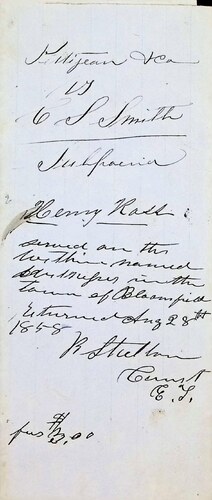 Petijean & co
vs
C S Smith
Subpoena
Henry Hast :
served on the
within named
witnesses in the
town of Bloomfield
returned Aug 28th
1858
Const
E. T.
fees $2.00